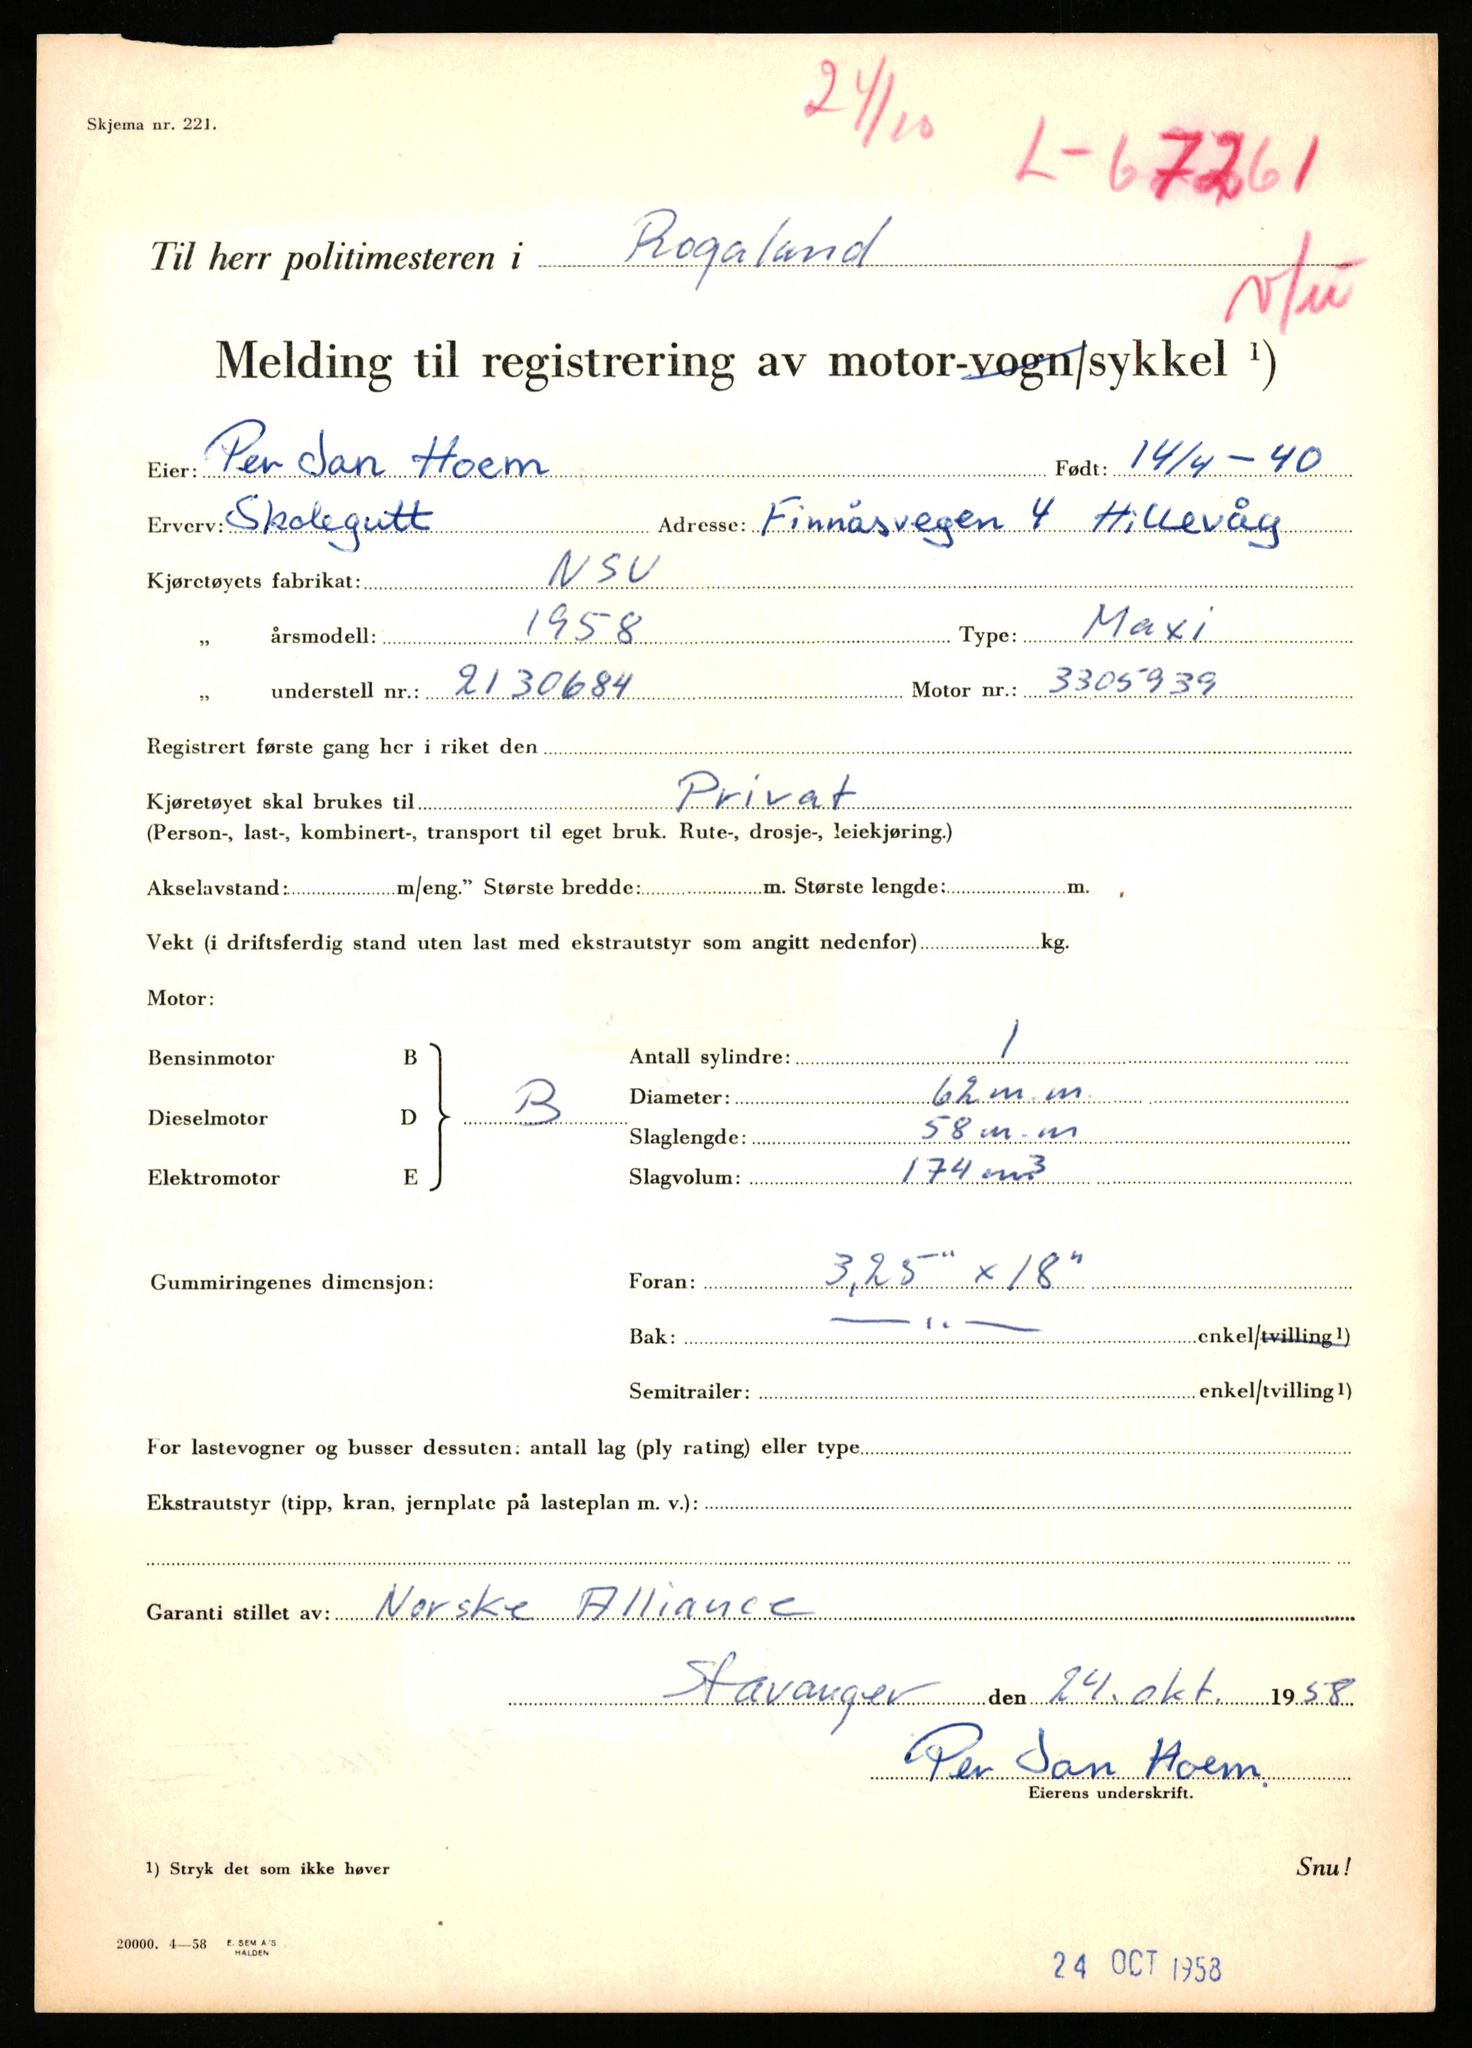 24/10
Skjema nr. 221.
L-67261
Til herr politimesteren i Rogaland
Melding til registrering av motor-vogn/sykkel ¹)
Eier: Per Jan Hoem Født: 14/4 - 40
Erverv: Skolegutt Adresse: Finnåsvegen 4 Hillevåg
Kjøretøyets fabrikat: NSU
„ årsmodell: 1958 Type: Maxi
„ understell nr.: 2130684 Motor nr.: 3305939
Registrert første gang her i riket den
Kjøretøyet skal brukes til Privat
(Person-, last-, kombinert-, transport til eget bruk. Rute-, drosje-, leiekjøring.)
Akselavstand: m/eng.” Største bredde: m. Største lengde: m.
Vekt (i driftsferdig stand uten last med ekstrautstyr som angitt nedenfor) kg.
Motor:
Bensinmotor B
Dieselmotor D
Elektromotor E
B
Antall sylindre: 1
Diameter: 62 m.m.
Slaglengde: 58 m.m
Slagvolum: 174 cm³
Gummiringenes dimensjon: Foran: 3,25" x 18"
Bak: —„— enkel/tvilling¹)
Semitrailer: enkel/tvilling¹)
For lastevogner og busser dessuten: antall lag (ply rating) eller type
Ekstrautstyr (tipp, kran, jernplate på lasteplan m. v.):
Garanti stillet av: Norske Alliance
Stavanger den 24. okt. 1958
Per Jan Hoem.
Eierens underskrift.
¹) Stryk det som ikke høver
Snu!
20000. 4—58 E. SEM A'S
HALDEN
24 OCT 1958